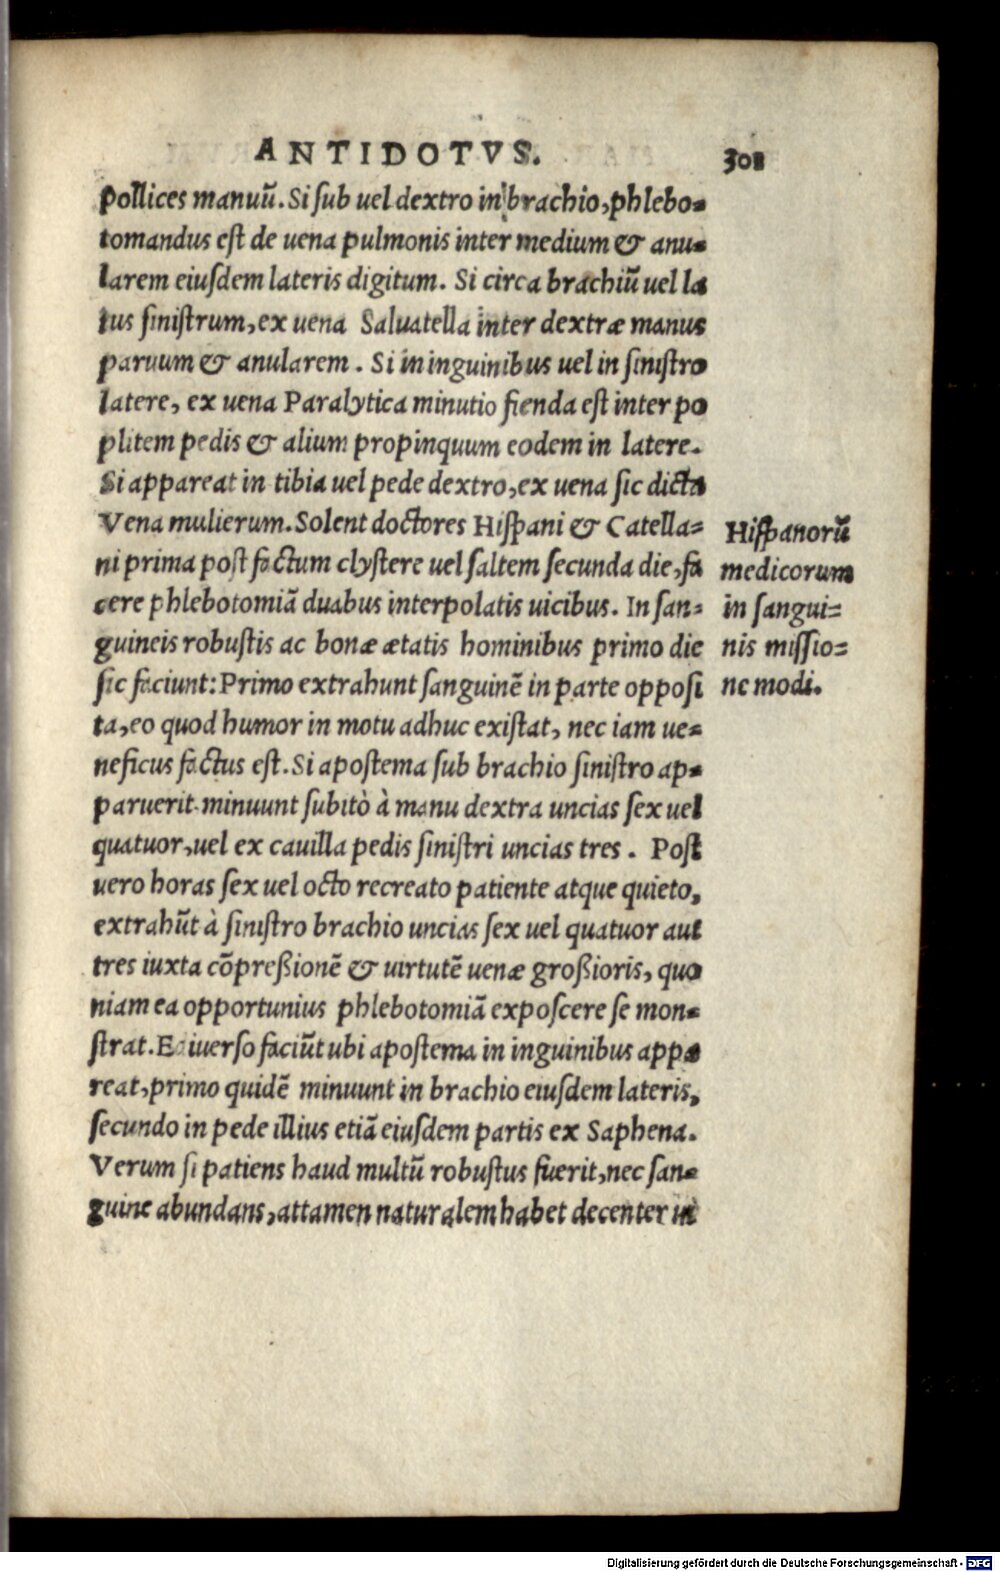 ANTIDOTVS.
301
pollices manuũ. Si sub vel dextro in brachio, phlebo-
tomandus est de uena pulmonis inter medium & anu-
larem eiusdem lateris digitum. Si circa brachiũ uel la
tus sinistrum, ex uena Saluatella inter dextræ manus
paruum & anularem. Si in inguinibus uel in sinistro
latere, ex uena Paralytica minutio fienda est inter po
plitem pedis & alium propinquum eodem in latere.
Si appareat in tibia uel pede dextro, ex uena sic dicta
Vena mulierum. Solent doctores Hispani & Catella-
ni prima post factum clystere uel saltem secunda die, fa
cere phlebotomiã duabus interpolatis uicibus. In san-
guineis robustis ac bonæ ætatis hominibus primo die
sic faciunt: Primo extrahunt sanguinẽ in parte opposi
ta, eo quod humor in motu adhuc existat, nec iam ue-
neficus factus est. Si apostema sub brachio sinistro ap-
paruerit minuunt subitò à manu dextra uncias sex uel
quatuor, uel ex cauilla pedis sinistri uncias tres. Post
uero horas sex uel octo recreato patiente atque quieto,
extrahũt à sinistro brachio uncias sex uel quatuor aut
tres iuxta cõpreßionẽ & uirtutẽ uenæ großioris, quo
niam ea opportunius phlebotomiã exposcere se mon-
strat. E diuerso faciũt ubi apostema in inguinibus appa
reat, primo quidẽ minuunt in brachio eiusdem lateris,
secundo in pede illius etiã eiusdem partis ex Saphena.
Verum si patiens haud multũ robustus fuerit, nec san-
guine abundans, attamen naturalem habet decenter ui
Hispanorũ
medicorum
in sangui-
nis missio-
ne modi.
Digitalisierung gefördert durch die Deutsche Forschungsgemeinschaft - DFG